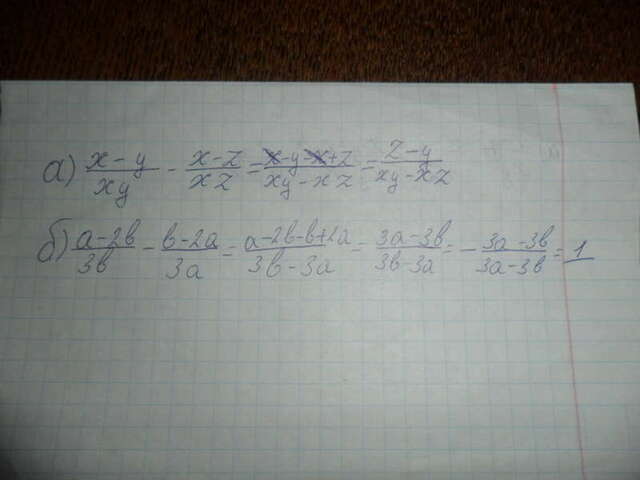 а) x-y/xy - x-z/xz = x-y-x+z/xy-xz = z-y/xy-xz
б) a-2b/3b - b-2a/3a = a-2b-b+2a/3b-3a = 3a-3b/3b-3a = - 3a-3b/3a-3b = 1